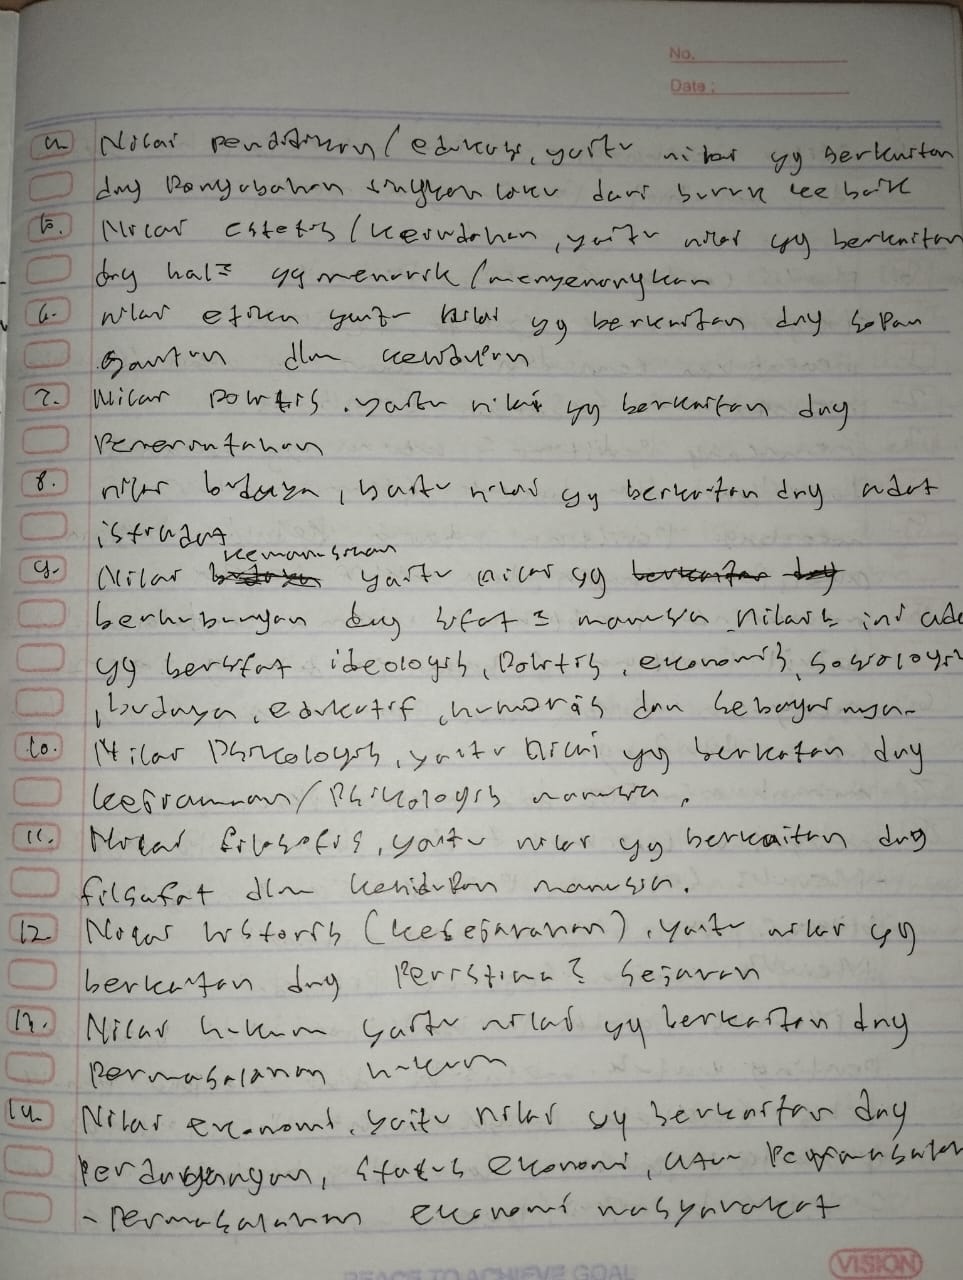 No.
Date :
4. Nilai pendidikan / edukasi, yaitu nilai yg berkaitan
dng Pengubahan tingkah laku dari buruk ke baik
5. Nilai estetis / keindahan, yaitu nilai yg berkaitan
dng hal2 yg menarik / menyenangkan
6. nilai etika yaitu nilai yg berkaitan dng sopan
santun dlm kehidupan
7. Nilai politis, yaitu nilai yg berkaitan dng
Pemerintahan
8. nilai budaya, yaitu nilai yg berkaitan dng adat
istiadat
kemanusiaan
9. Nilai budaya yaitu nilai yg berkaitan dng
berhubungan dng sifat2 manusia. Nilai2 ini ada
yg bersifat ideologis, Politis, ekonomis, sosiologis
, budaya, edukatif, humoris dan sebagainya.
10. Nilai Psikologis, yaitu nilai yg berkaitan dng
kejiwaan / Psikologis manusia.
11. Nilai filosofis, yaitu nilai yg berkaitan dng
filsafat dlm kehidupan manusia.
12. Nilai historis (kesejarahan), yaitu nilai yg
berkaitan dng Peristiwa2 sejarah
13. Nilai hukum yaitu nilai yg berkaitan dng
Permasalahan hukum
14. Nilai ekonomi, yaitu nilai yg berkaitan dng
Perdagangan, status ekonomi, atau
- Permasalahan ekonomi masyarakat
PEACE TO ACHIEVE GOAL
VISION